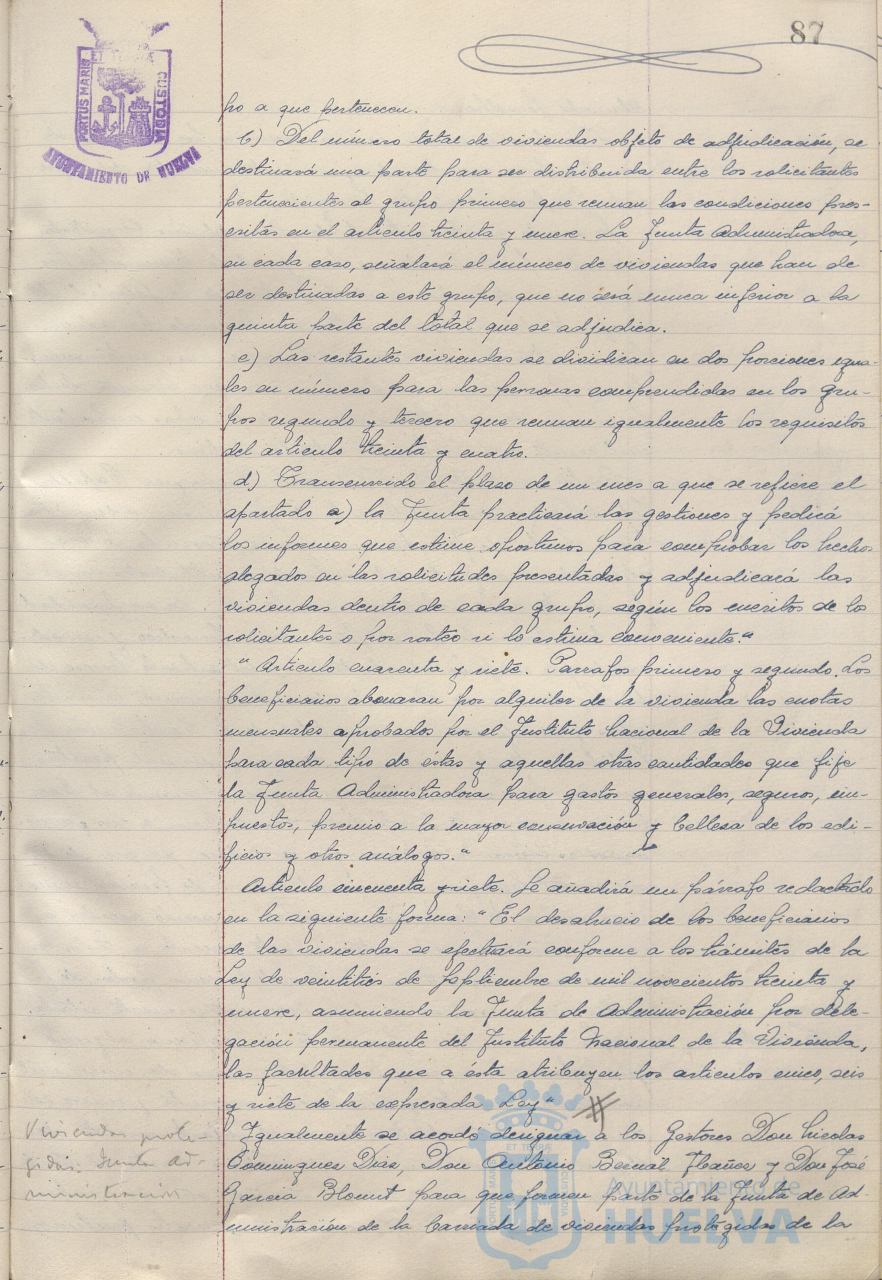 87
PORTUS MARIS ET TERRE CUSTODIA
AYUNTAMIENTO DE HUELVA
po a que pertenecen.
b) Del número total de viviendas objeto de adjudicación, se
destinará una parte para ser distribuida entre los solicitantes
pertenecientes al grupo primero que reunan las condiciones pres-
critas en el articulo treinta y nueve. La Junta Administradora,
en cada caso, señalará el número de viviendas que han de
ser destinadas a este grupo, que no será nunca inferior a la
quinta parte del total que se adjudica.
c) Las restantes viviendas se dividiran en dos porciones igua-
les en número para las personas comprendidas en los gru-
pos segundo y tercero que reunan igualmente los requisitos
del articulo treinta y cuatro.
d) Transcurrido el plazo de un mes a que se refiere el
apartado a) la Junta practicará las gestiones y pedirá
los informes que estime oportunos para comprobar los hechos
alegados en las solicitudes presentadas y adjudicará las
viviendas dentro de cada grupo, según los meritos de los
solicitantes o por sorteo si lo estima conveniente."
"Articulo cuarenta y siete. Parrafos primero y segundo. Los
beneficiarios abonaran por alquiler de la vivienda las cuotas
mensuales aprobados por el Instituto Nacional de la Vivienda
para cada tipo de éstas y aquellas otras cantidades que fije
la Junta Administradora para gastos generales, seguros, im-
puestos, premio a la mayor conservación y belleza de los edi-
ficios y otros análogos."
Articulo cincuenta y siete. Se añadirá un párrafo redactado
en la siguiente forma: "El desahucio de los beneficiarios
de las viviendas se efectuará conforme a los trámites de la
Ley de veintitrés de Septiembre de mil novecientos treinta y
nueve, asumiendo la Junta de Administración por dele-
gación permanente del Instituto Nacional de la Vivienda,
las facultades que a ésta atribuyen los articulos cinco, seis
y siete de la expresada Ley"
Viviendas prote-
gidas. Junta Ad-
ministración
Igualmente se acordó designar a los Gestores Don Nicolas
Dominguez Diaz, Don Antonio Bernal Ibañez y Don José
Garcia Blomut para que formen parte de la Junta de Ad-
ministración de la barriada de viviendas protegidas de la
Ayuntamiento de
HUELVA